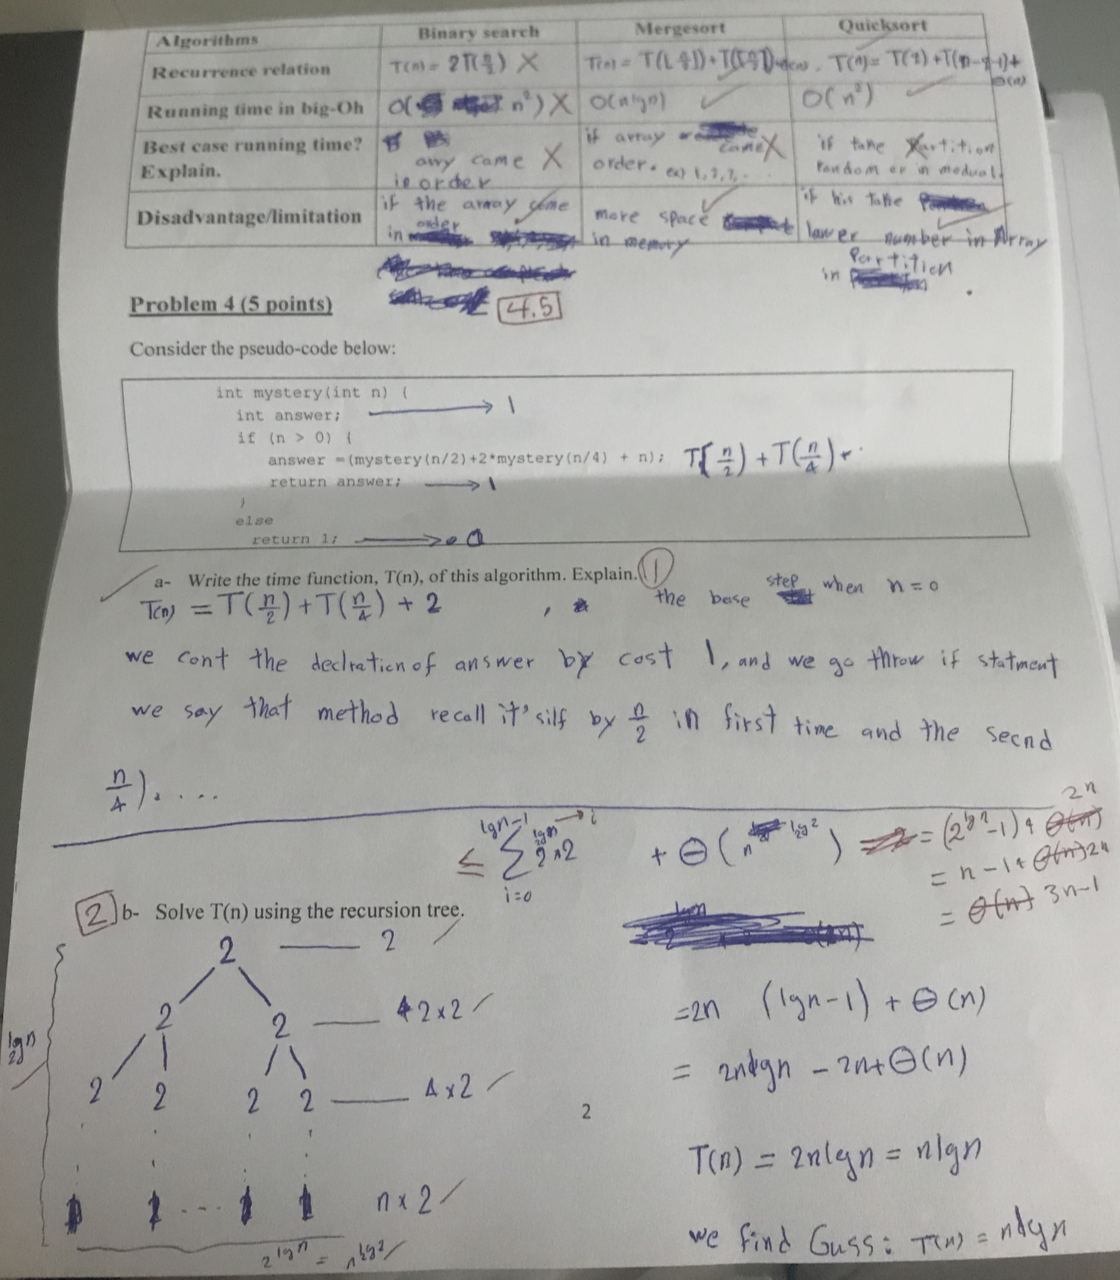 Algorithms Binary search Mergesort Quicksort
Recurrence relation T(n) = 2T(n/2) X T(n) = T(⌊n/2⌋)+T(⌈n/2⌉) T(n) = T(q)+T(n-q-1)+
Running time in big-Oh O( n²) X O(nlgn) ✓ O(n²) ✓
Best case running time? if array came X if take Partition
Explain. any came X order. ex) 1,2,3,.. random or in
in order
Disadvantage/limitation if the array come more space if take
in order in memory lower number in Array
in Partition
Problem 4 (5 points) 4.5
Consider the pseudo-code below:
int mystery(int n) {
int answer; → 1
if (n > 0) {
answer =(mystery(n/2)+2*mystery(n/4) + n); T(n/2) + T(n/4) +
return answer; → 1
}
else
return 1; → 0
a- Write the time function, T(n), of this algorithm. Explain. 1
T(n) = T(n/2) + T(n/4) + 2 , the base step when n=0
we cont the declration of answer by cost 1, and we go throw if statment
we say that method recall it'silf by n/2 in first time and the secnd
n/4). ...
≤ lgn-1 Σ i=0 2 x 2 → i + Θ(n lg2) = (2^lgn -1)+ 2n
= n-1+ 2n
= 3n-1
2 b- Solve T(n) using the recursion tree.
2 — 2
2 2 — 2x2
lgn
2 2 2 2 — 4x2
n x 2
2^lgn = n^lg2
=2n (lgn-1) + Θ(n)
= 2nlgn - 2n+Θ(n)
T(n) = 2nlgn = nlgn
we find Guss: T(n) = nlgn
2